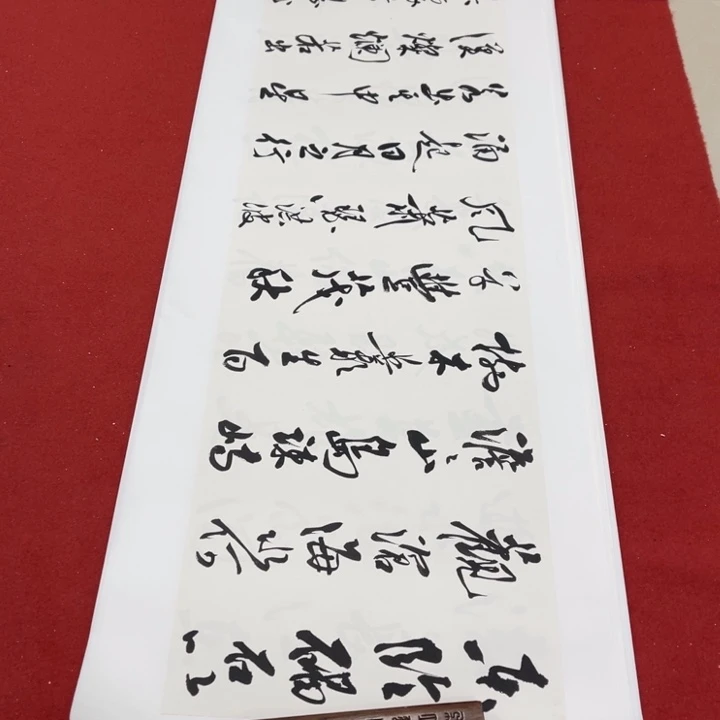 东临碣石以
觀滄海水何
澹々山島竦峙
樹木叢生百
草豐茂秋
風蕭瑟洪波
涌起日月之行
若出其中星
漢燦爛若出